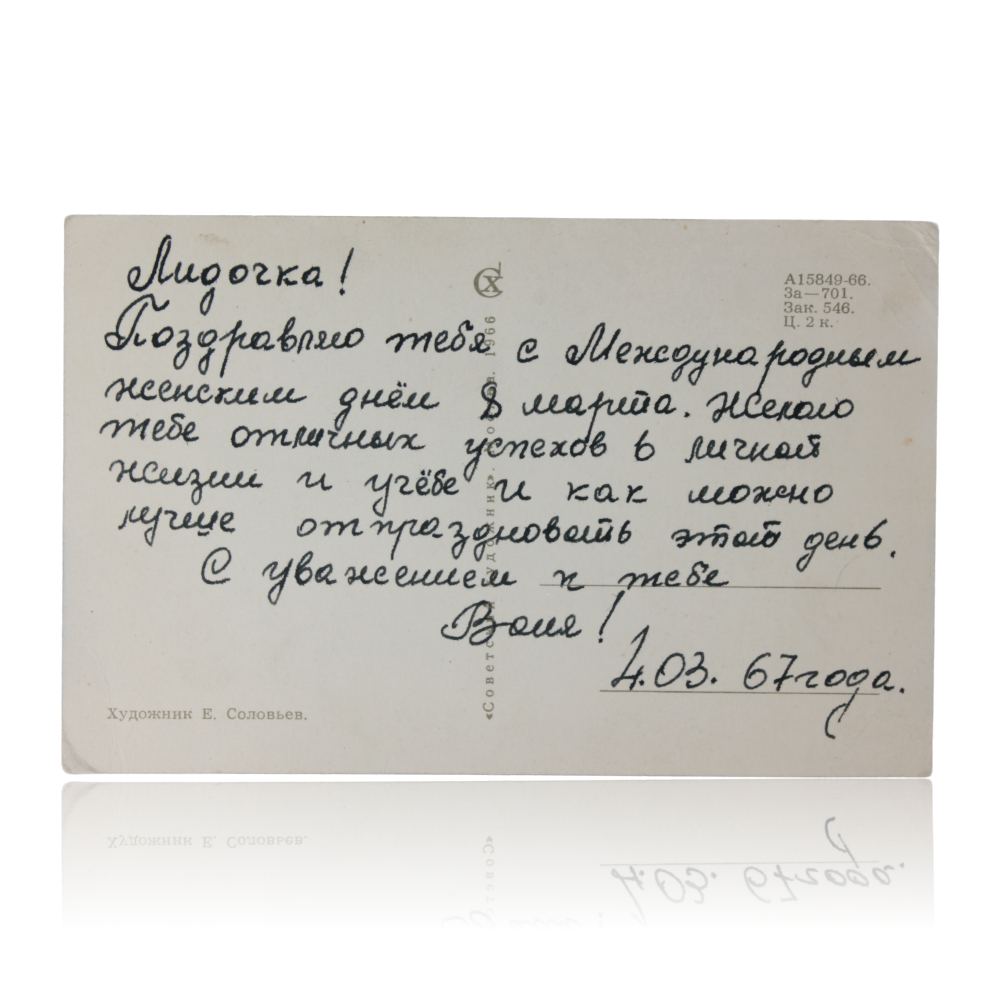 Лидочка!
Поздравляю тебя с Международным
женским днём 8 марта. Желаю
тебе отличных успехов в личной
жизни и учёбе и как можно
лучше отпраздновать этот день.
С уважением к тебе
Воля!
4.03. 67 года.
А15849-66.
За—701.
Зак. 546.
Ц. 2 к.
Художник Е. Соловьев.
1966